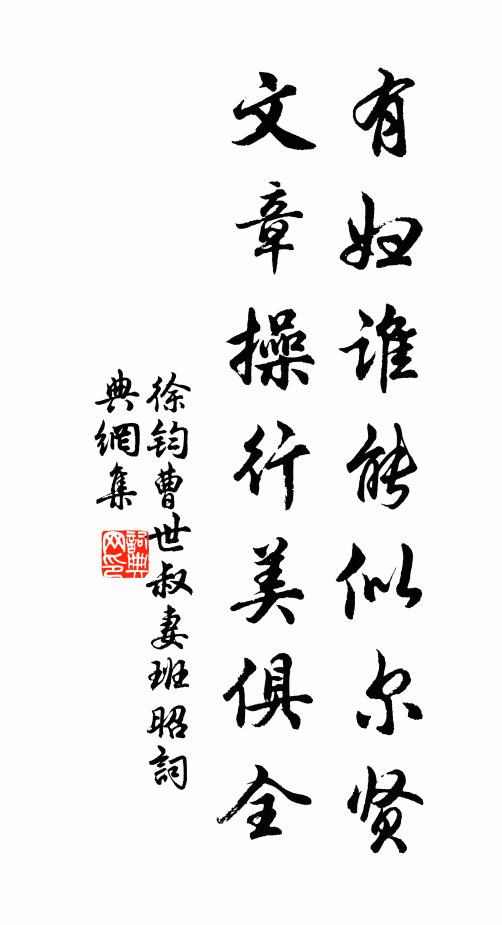 有妇谁能似尔贤
文章操行美俱全
徐钧曹世叔妻班昭詞
典網集
詞典
网印